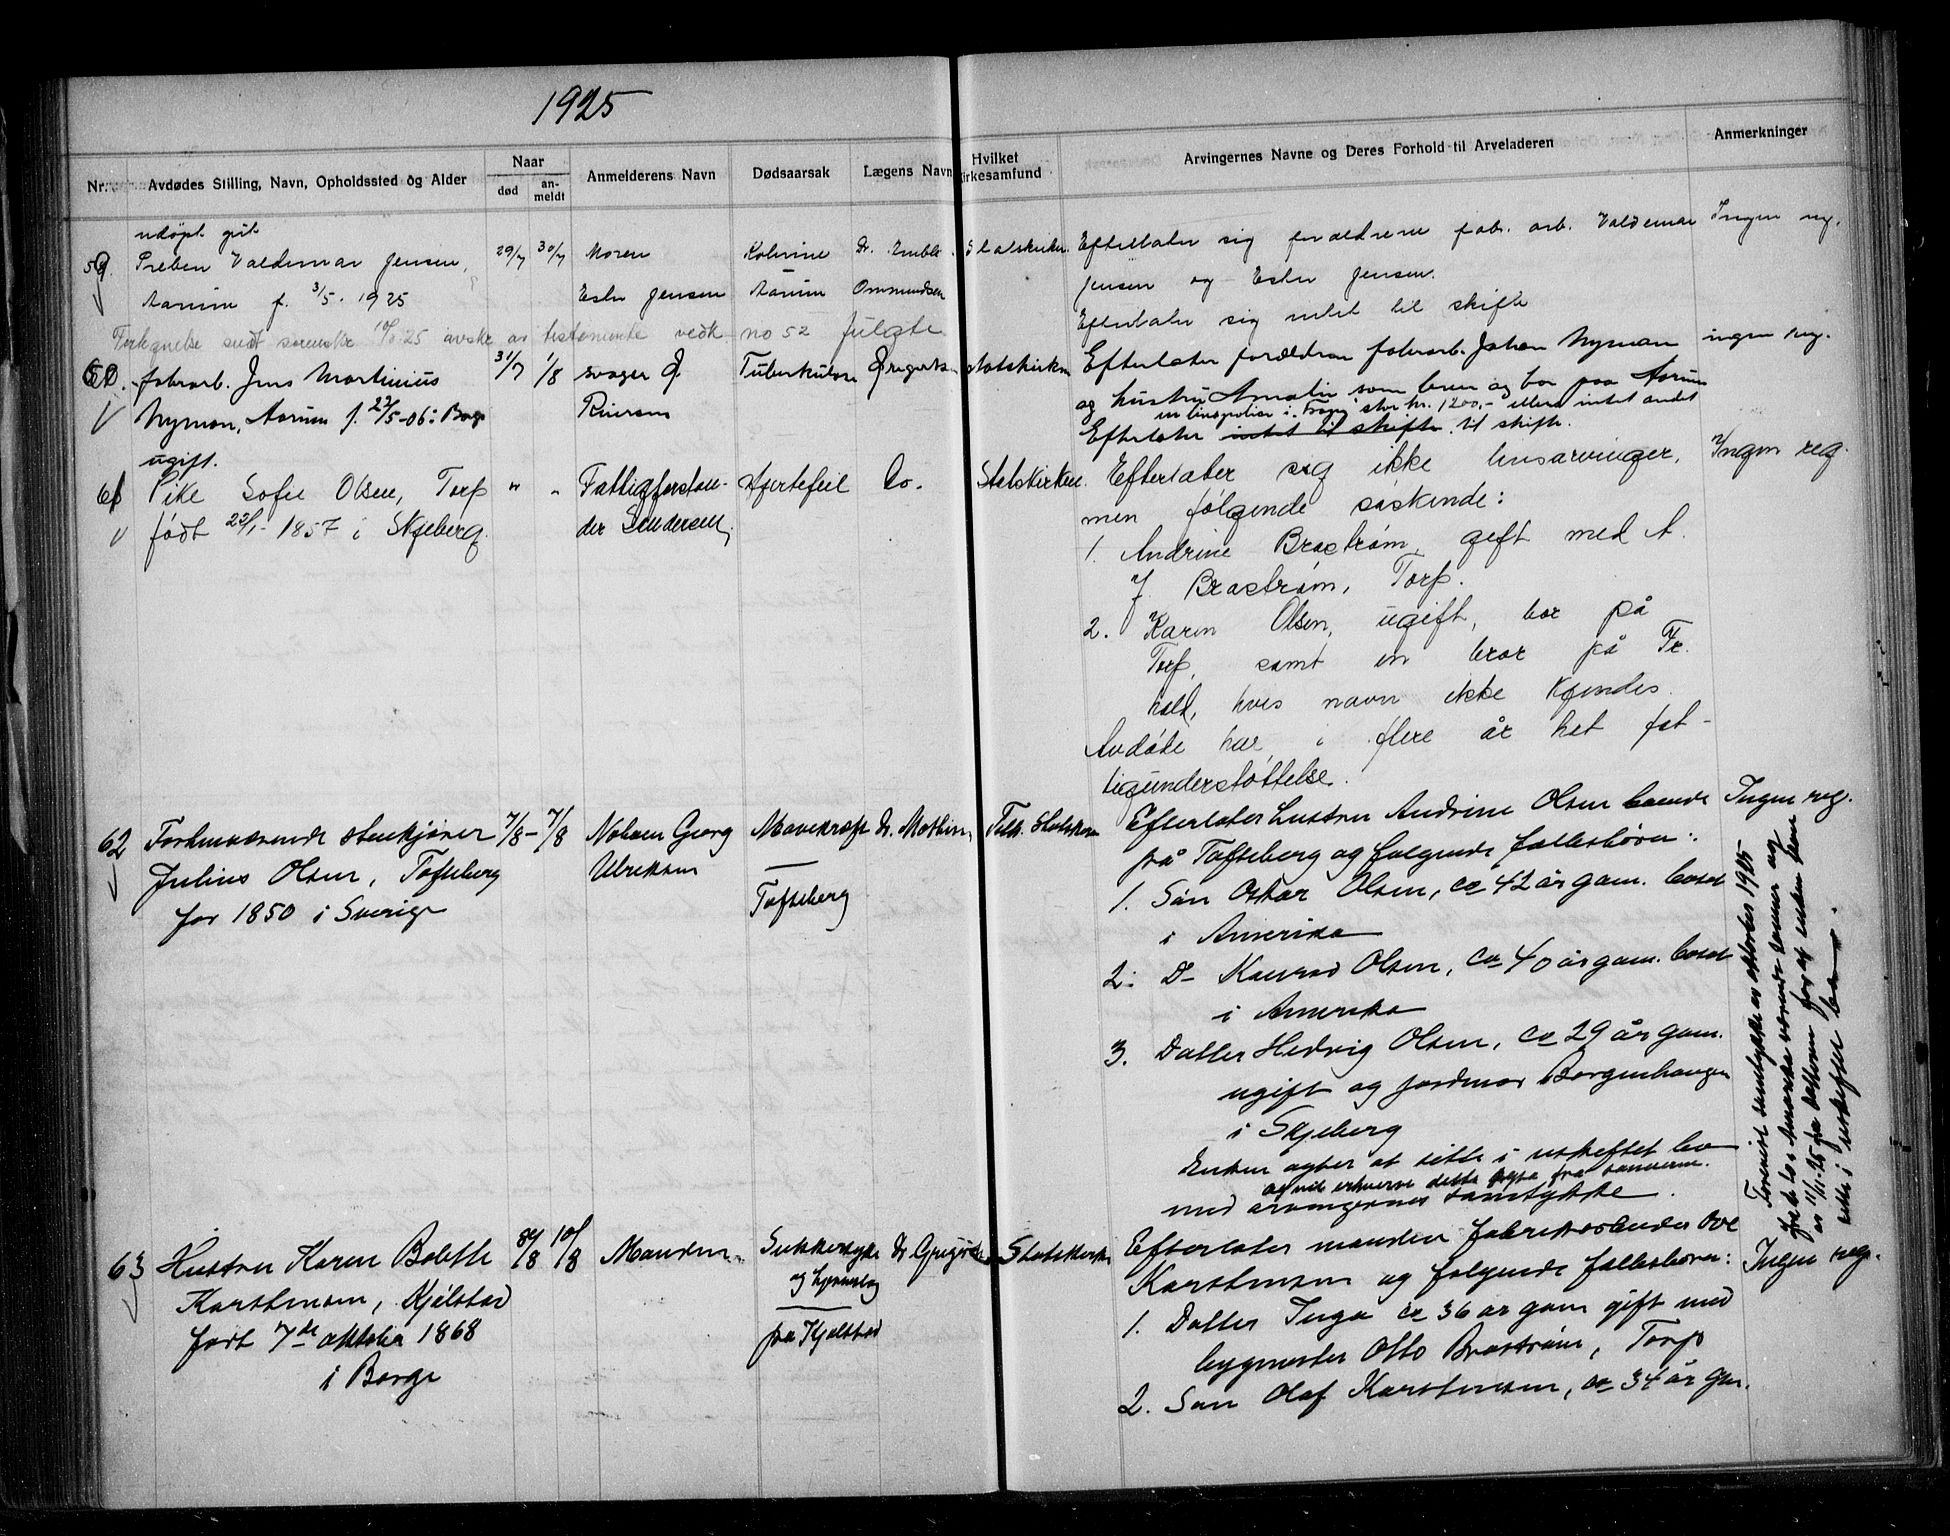 1925
Nr. Avdødes Stilling, Navn, Opholdssted og Alder Naar død an-meldt Anmelderens Navn Dødsaarsak Lægens Navn Hvilket irkesamfund Arvingernes Navne og Deres Forhold til Arveladeren Anmerkninger
udøpt gut
59. Preben Valdemar Jensen, 29/7 30/7 Moren Kolerine Dr. Emble Statskirken Efterlater sig forældrene fab. arb. Valdemar Ingen reg.
Aarum f. 3/5. 1925 Ester Jensen Aarum Ommundsen Jensen og Ester Jensen.
Efterlater sig intet til skifte
sendt 10/8 25 avskr av testamente vedk no 52
60. fabrarb. Jens Martinius 31/7 1/8 svager Tuberkulose Gregertsen Statskirken Efterlater forældrene fabrarb. Johan Nyman ingen reg.
Nyman, Aarum f. 22/5-06 i Borge og hustru Amalie som lever og bor paa Aarum
en livspolise i stor kr. 1200,- ellers intet andet
ugift. Efterlater intet til skifte til skifte.
61 Pike Sofie Olsen, Torp " " Fattigforstan- Hjertefeil Do. Statskirken. Efterlater sig ikke livsarvinger, Ingen reg.
født 22/1-1857 i Skjeberg. der Sendersen, men følgende søskende:
1. Andrine Brostrøm, gift med A.
J. Brostrøm, Torp.
2. Karen Olsen, ugift, bor på
Torp, samt en bror på Fr.
hald, hvis navn ikke kjendes.
Avdøde har i flere år hat fat-
tigunderstøttelse.
62 Forhenværende stenkjører 7/8 - 7/8 Naboen Georg Mavekræft Dr. Mathiesen Statskirken Efterlater hustru Andrine Olsen boende Ingen reg.
Julius Olsen, Tofteberg Ulriksen på Tofteberg og følgende fællesbørn:
før 1850 i Sverige Tofteberg 1. Søn Oskar Olsen, ca 42 år gam. bosat
i Amerika
2. D- Konrad Olsen, ca 40 år gam. bosat
i Amerika
3. Datter Hedvig Olsen, ca 29 år gam.
ugift og jordmor Borgenhaugen
i Skjeberg
Enken agter at sitte i uskiftet bo
og vil erhverve dette fra sønnerne.
med arvingernes samtykke.
Forevist samtykke av oktober 1925
fra de to i Amerika værende sønner og
av 11/11-25 fra datteren for at enken kan
sitte i uskiftet bo.
63 Hustru Karen Bolette 8/8 10/8 Manden Sukkersyke Dr Gregertsen Statskirken Efterlater manden fabrikarbeider Ove Ingen reg.
Karstensen, Kjølstad og Karstensen og følgende fællesbørn:
født 7de oktober 1868 fra Kjølstad 1. Datter Inga ca 36 år gam gift med
i Borge bygmester Otto Brostrøm, Torp
2. Søn Olaf Karstensen, ca 34 år gam.